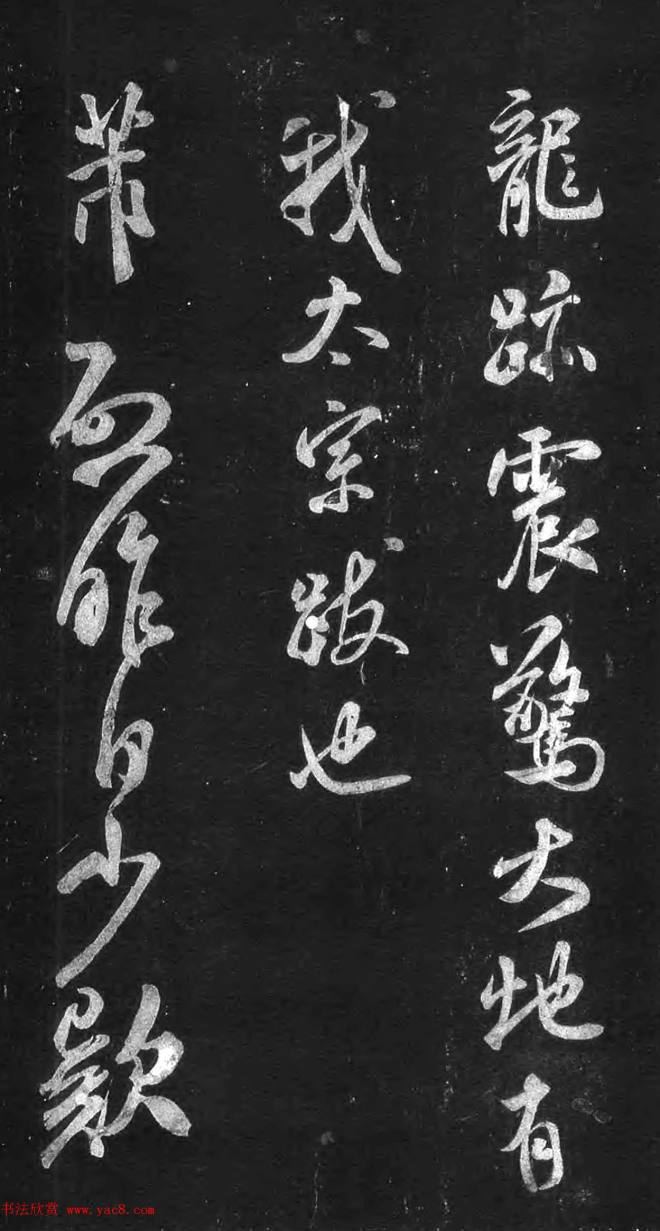 龍跡震驚大地有
我太宗跋也
芾啓昨日少款
書法欣赏 www.yac8.com